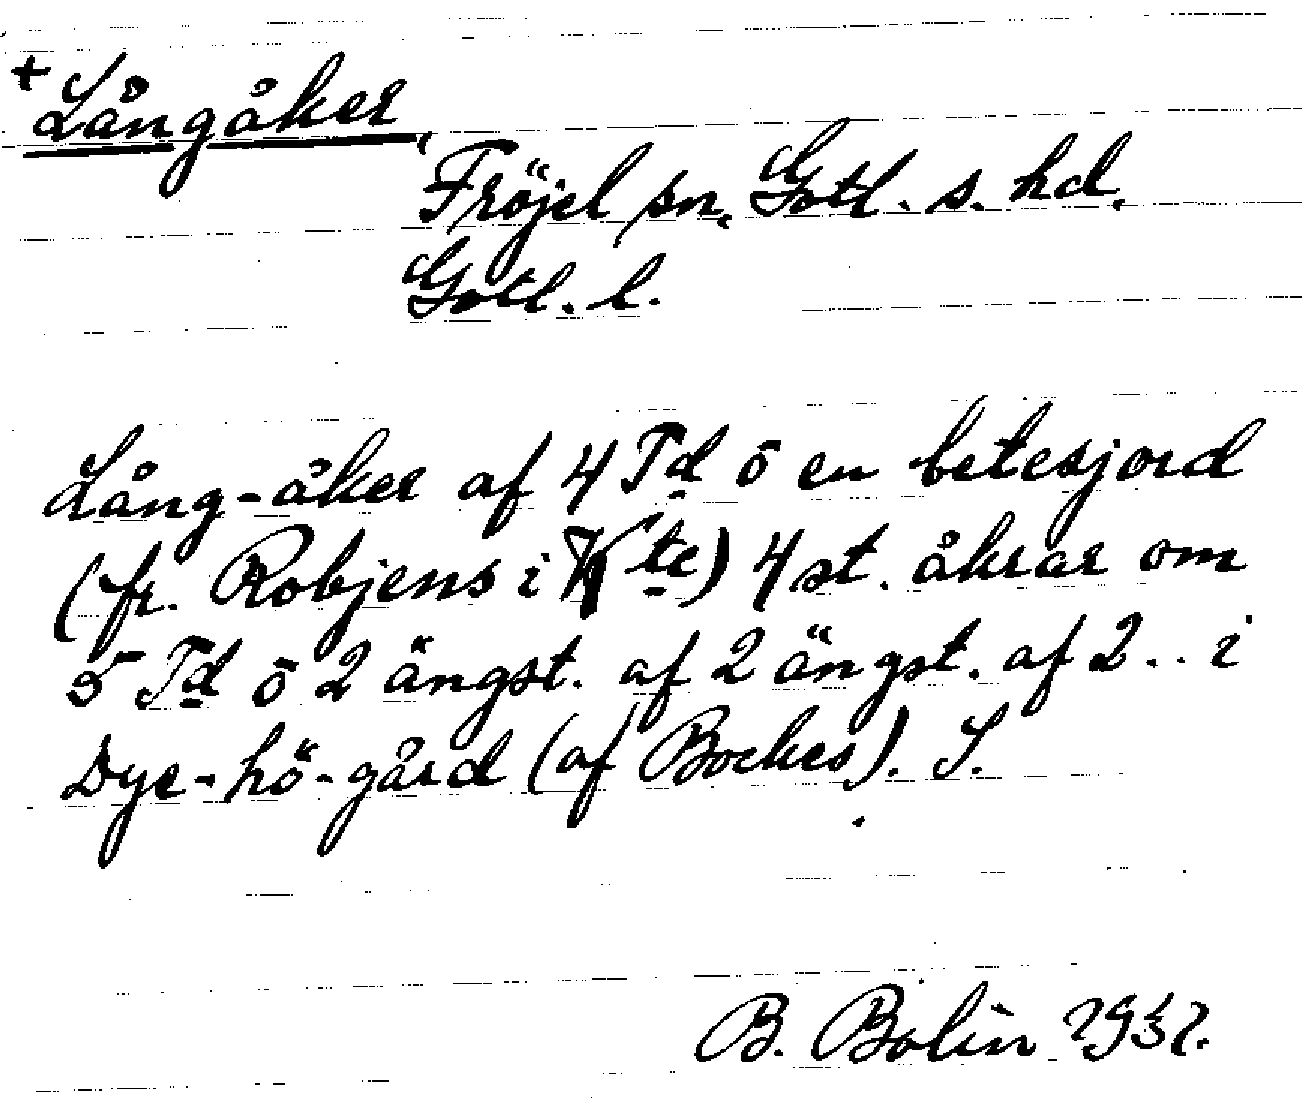 + Långåker,
Fröjel sn. Gotl. s. hd.
Gotl. l.
Lång-åker af 4 Td ō en betesjord
(fr. Robjens i Kte) 4 st. åkrar om
5 Td ō 2 ängst. af 2 ängst. af 2.. i
Dye-hö-gård (af Bockes). S.
B. Bolin